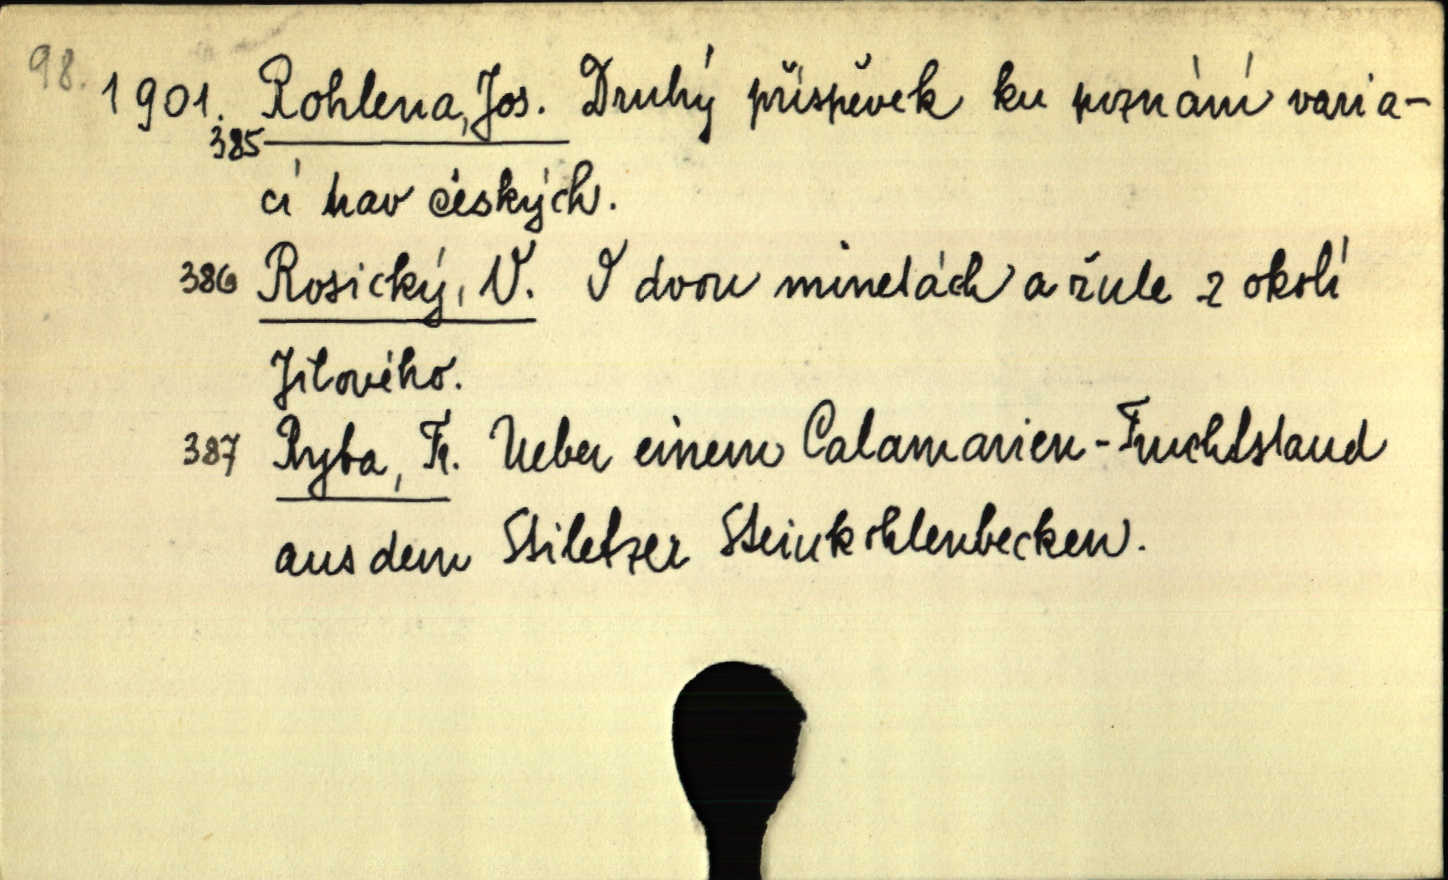 98.
1901. Rohlena, Jos. Druhý příspěvek ku poznání varia-
385
cí trav českých.
386 Rosický, V. O dvou minetách a žule z okolí
Jílového.
387 Ryba, Fr. Ueber einem Calamarien-Fruchtstand
aus dem Stiletzer Steinkohlenbecken.